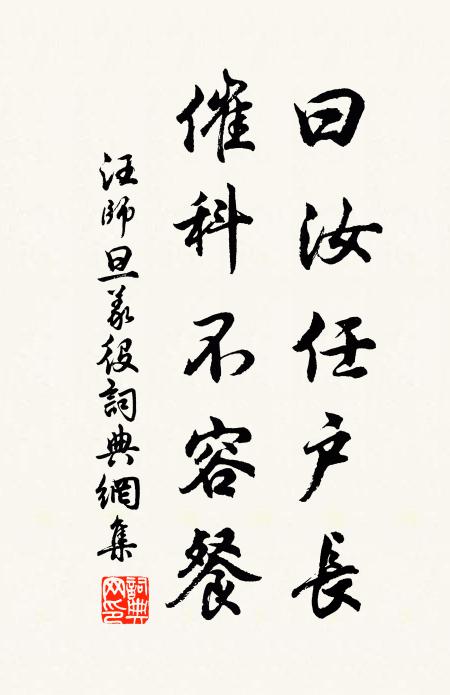 曰汝任户長
催科不容餐
汪師旦義役詞典網集
詞典网印